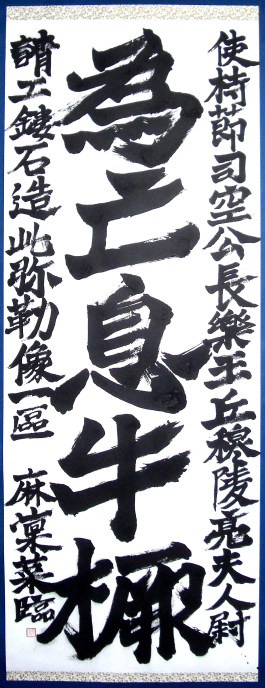 使持節司空公長樂王丘穆陵亮夫人尉
為亡息牛橛
請工鏤石造此弥勒像一區 麻菓菜臨